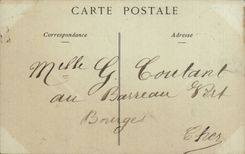 CARTE POSTALE
Correspondance
Adresse
Melle G. Coutant
au Barreau Vert
Bourges
Cher